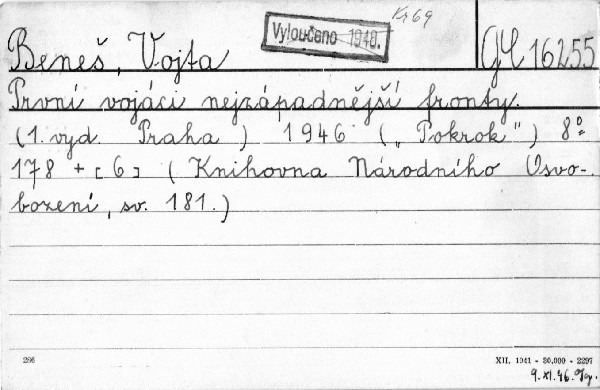 Kr69
Vyloučeno 1948.
Beneš, Vojta
GE 16255
První vojáci nejzápadnější fronty.
(1. vyd. Praha) 1946 („Pokrok") 8°
178 + [6] (Knihovna Národního Osvo-
bození, sv. 181.)
286
XII. 1941 - 80,000 - 2297
9.XI.46.